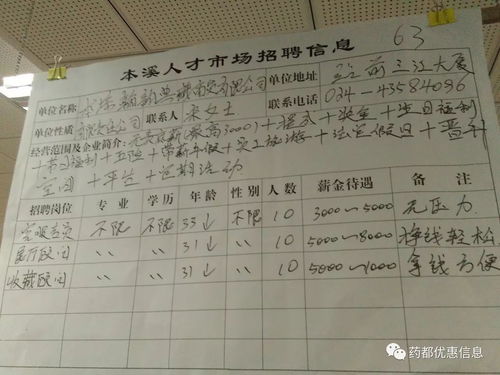 63
本溪人才市场招聘信息
单位名称 本溪 商贸有限公司 单位地址 站前三江大厦
单位性质 有限公司 联系人 宋女士 联系电话 024-43584096
经营范围及企业简介: 无责底薪(最高3000)+提成+奖金+生日福利
+节日福利+五险+带薪年假+员工旅游+法定假日+晋升
空间+平台+定期活动
招聘岗位 专业 学历 年龄 性别 人数 薪金待遇 备注
客服专员 不限 不限 35↓ 不限 10 3000~5000 无压力
医疗顾问 〃 〃 31↓ 〃 10 5000~8000 挣钱轻松
收藏顾问 〃 〃 31↓ 〃 10 5000~1000 拿钱方便
药都优惠信息